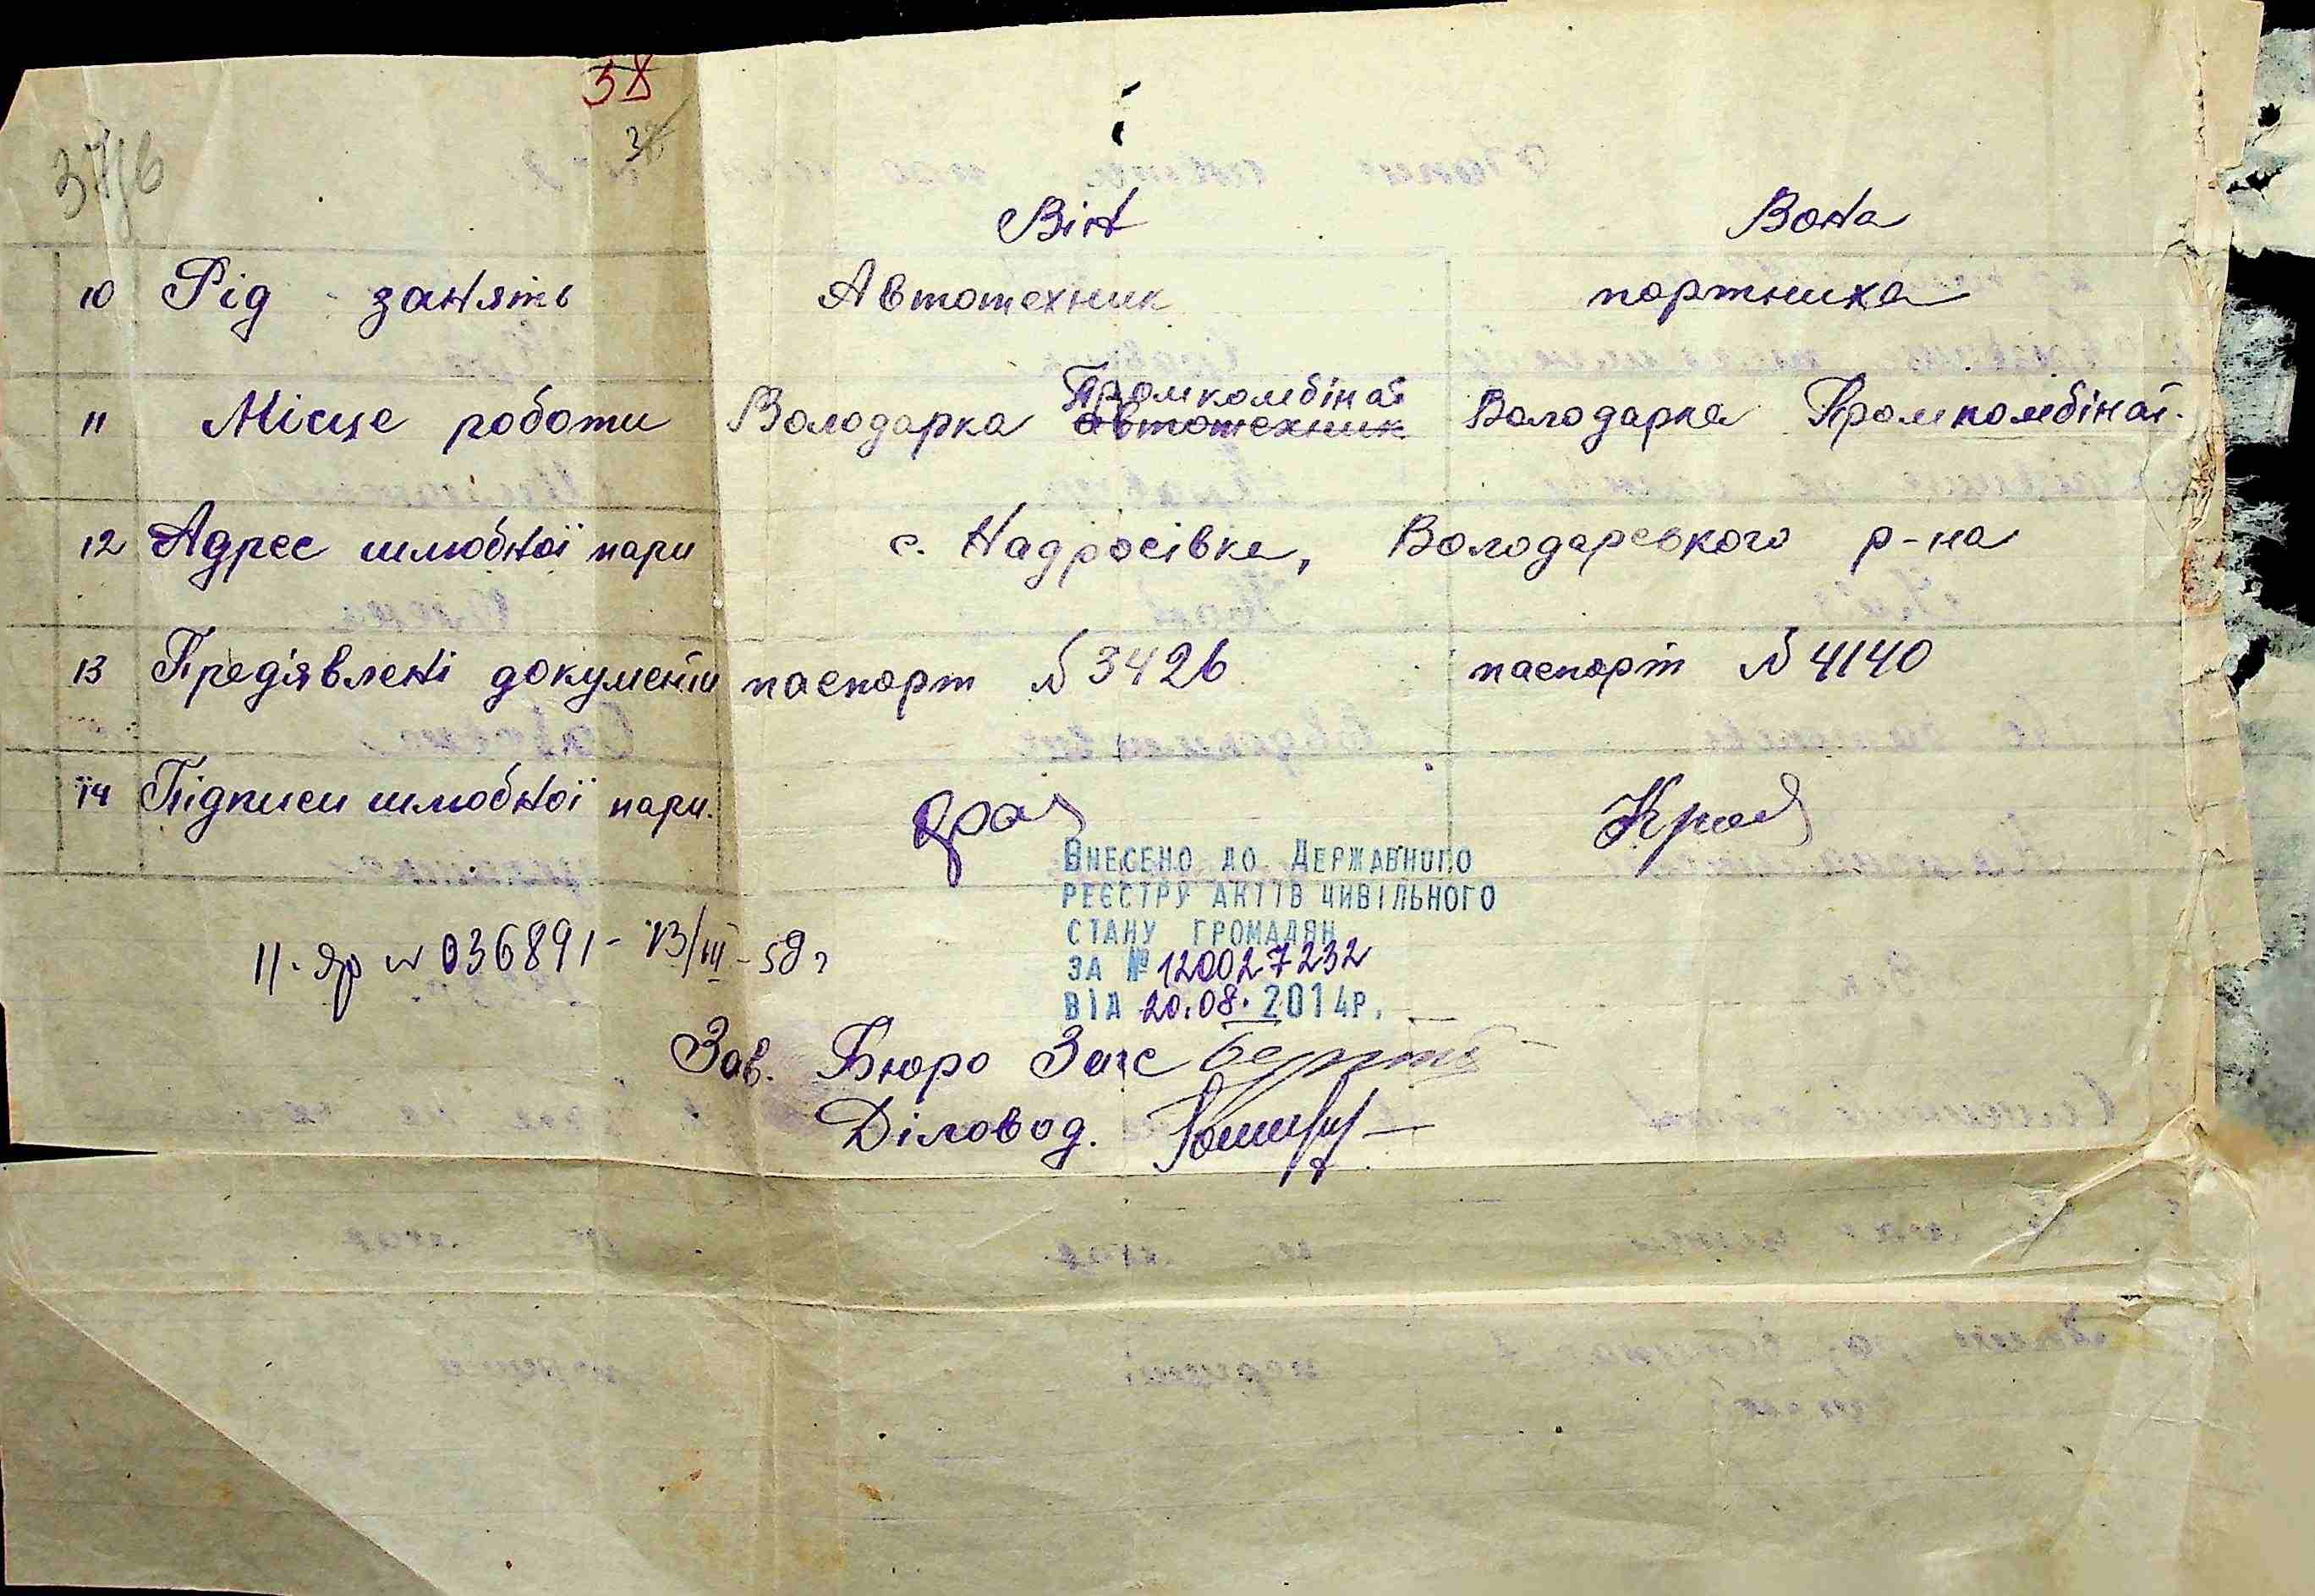 58
38
37/6
Він Вона
10 Рід занять Автотехник портниха
Промкомбінат
11 Місце роботи Володарка автотехник Володарка Промкомбінат.
12 Адрес шлюбної пари с. Надросівка, Володарського р-на
13 Пред'явлені документи паспорт № 3426 паспорт № 4140
14 Підписи шлюбної пари.
ВНЕСЕНО ДО ДЕРЖАВНОГО
РЕЄСТРУ АКТІВ ЦИВІЛЬНОГО
СТАНУ ГРОМАДЯН
036891 - 13/III - 58 г
ЗА № 120027232
ВІД 20.08.2014Р.
Зав. Бюро Загс
Діловод.